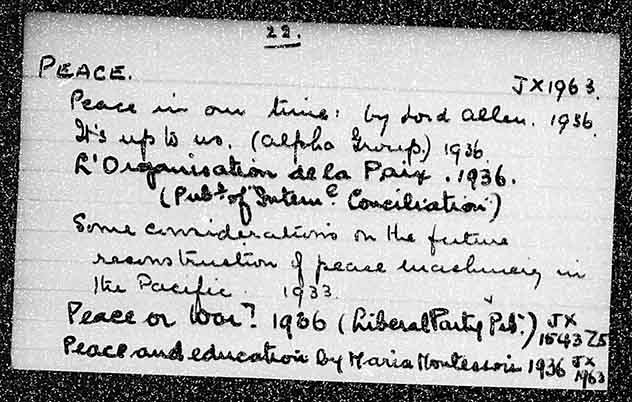 22.
PEACE. JX1963.
Peace in our time: by Lord Allen. 1936.
It's up to us. (Alpha Group.) 1936.
L'Organisation de la Paix. 1936.
(Pubt. of Internl. Conciliation)
Some considerations on the future
reconstruction of peace machinery in
the Pacific. 1933.
Peace or War? 1936 (Liberal Party Pubt.) JX
1543 Z5
Peace and education by Maria Montessori 1936 JX
1963